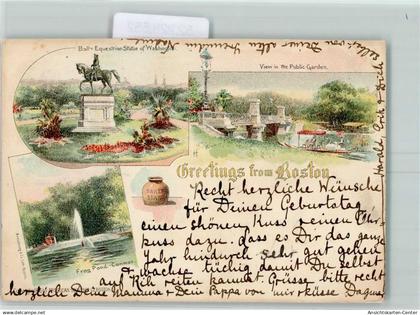 Ball's Equestrian Statue of Washington.
View in the Public Garden.
Greetings from Boston.
Frog Pond-Common
BAKED BEANS
Recht herzliche Wünsche
für Deinen Geburtstag
einen schönen Kuss reinen
kuss dazu. dass es Dir das ganze
Jahr hindurch sehr gut gehen
& wachse tüchtig damit Du selbst
auf Rik reiten kannst. Grüsse bitte recht
herzlich Deine Mamma & Den Pappa von mir küsse Dagmar
von Deiner alten
Harold, Erik & Dich selbst